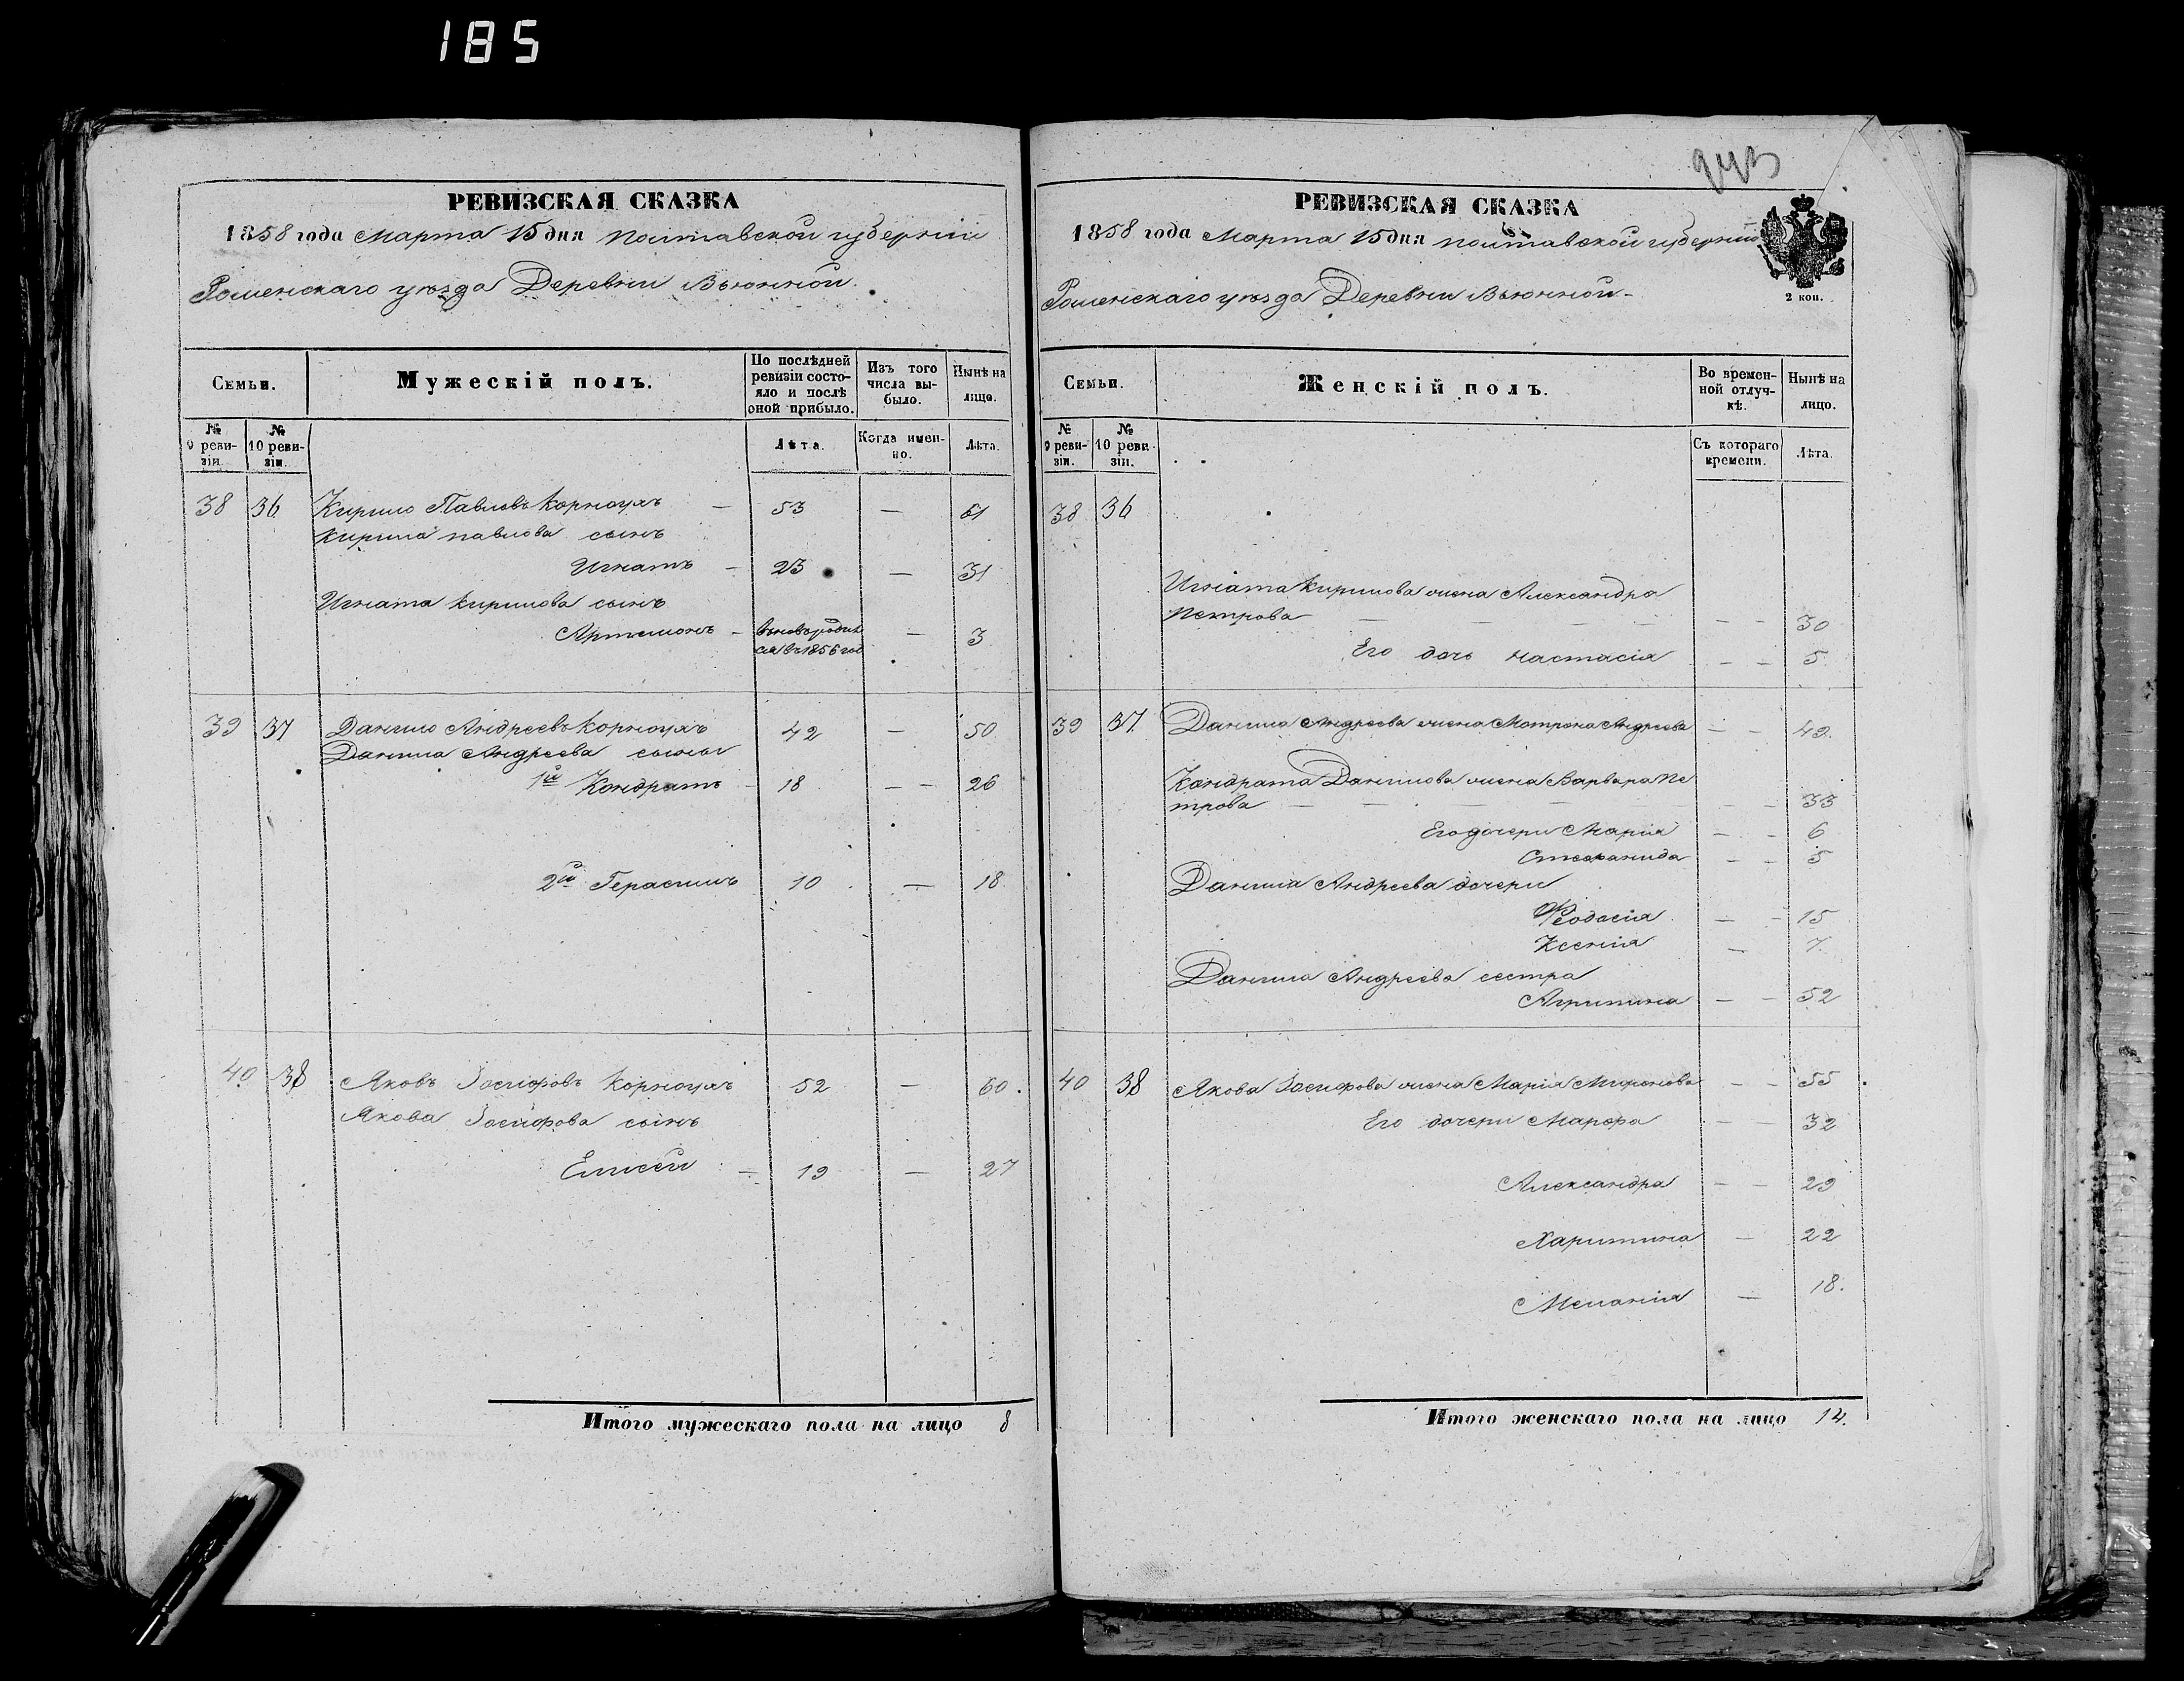 185
РЕВИЗСКАЯ СКАЗКА
1858 года Марта 15 дня Полтавской губерніи
Роменскаго уѣзда Деревни Вьюнной.
Семьи.
Мужескій полъ.
По послѣдней ревизіи состояло и послѣ оной прибыло.
Изъ того числа выбыло.
Нынѣ на лицо.
№ 9 ревизіи.
№ 10 ревизіи.
Лѣта.
Когда именно.
Лѣта.
38 36 Кирило Павловъ Корноухъ — 53 — 61
Кирила Павлова сынъ
Игнатъ — 23 — 31
Игната Кирилова сынъ
Артемонъ — вновьродил — 3
ся въ 1856 год
39 37 Данило Андреевъ Корноухъ 42 — 50
Данила Андреева сыны
1й Кондратъ — 18 — — 26
2й Герасимъ 10 — 18
40 38 Яковъ Іосифовъ Корноухъ 52 — 60.
Якова Іосифова сынъ
Елисей — 19 — 27
Итого мужескаго пола на лицо 8
РЕВИЗСКАЯ СКАЗКА
1858 года Марта 15 дня Полтавской губерніи
2 коп.
Роменскаго уѣзда Деревни Вьюнной-
Семьи.
Женскій полъ.
Во временной отлучкѣ.
Нынѣ на лицо.
№ 9 ревизіи.
№ 10 ревизіи.
Съ котораго времени.
Лѣта.
38 36
Игната Кирилова жена Александра
Петрова — — — — — — 30
Его дочь Настасія — — 5
39 37. Данила Андреева жена Мотрона Андреева — — 49.
Кондрата Данилова жена Варвара Пе
трова — — — — — — 33
Его дочери Марія — — 6
Стефанида — — 5
Данила Андреева дочери
Феодосія — — 15
Ксенія — 7.
Данила Андреева сестра
Агрипина — — 52
40 38 Якова Іосифова жена Марія Миронова — — 55
Его дочери Марфа — — 32
Александра — — 29
Харитина — 22
Меланія — 18.
Итого женскаго пола на лицо 14.